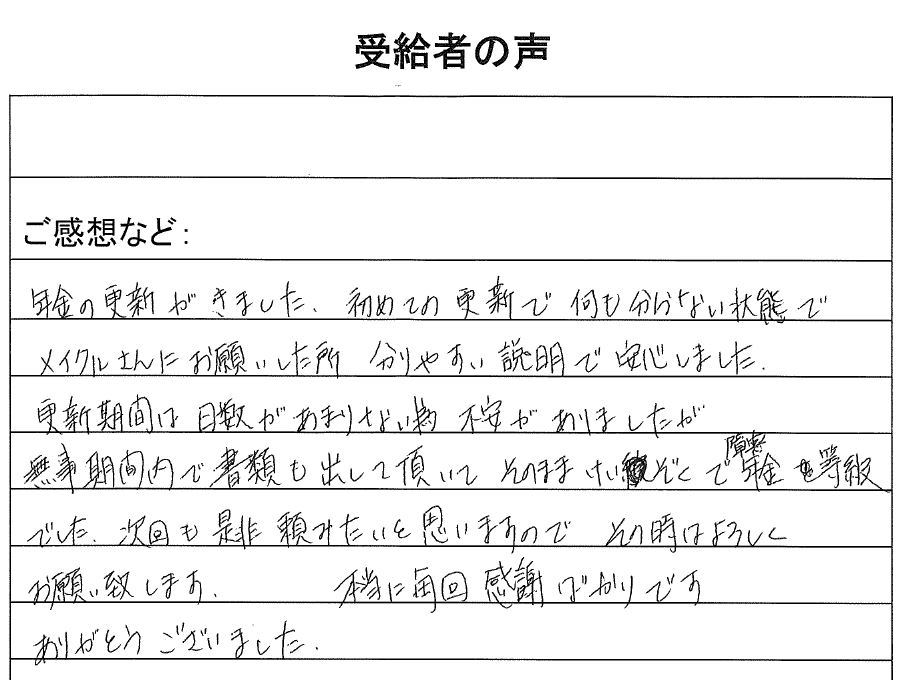 受給者の声
ご感想など：
年金の更新がきました。初めての更新で何も分からない状態で
メイクルさんにお願いした所 分りやすい説明で安心しました。
更新期間は日数があまりない為 不安がありましたが
無事期間内で書類も出して頂いて そのままけいぞくで障害年金も等級
でした。次回も是非頼みたいと思いますので その時はよろしく
お願い致します。 本当に毎回感謝ばかりです
ありがとうございました。